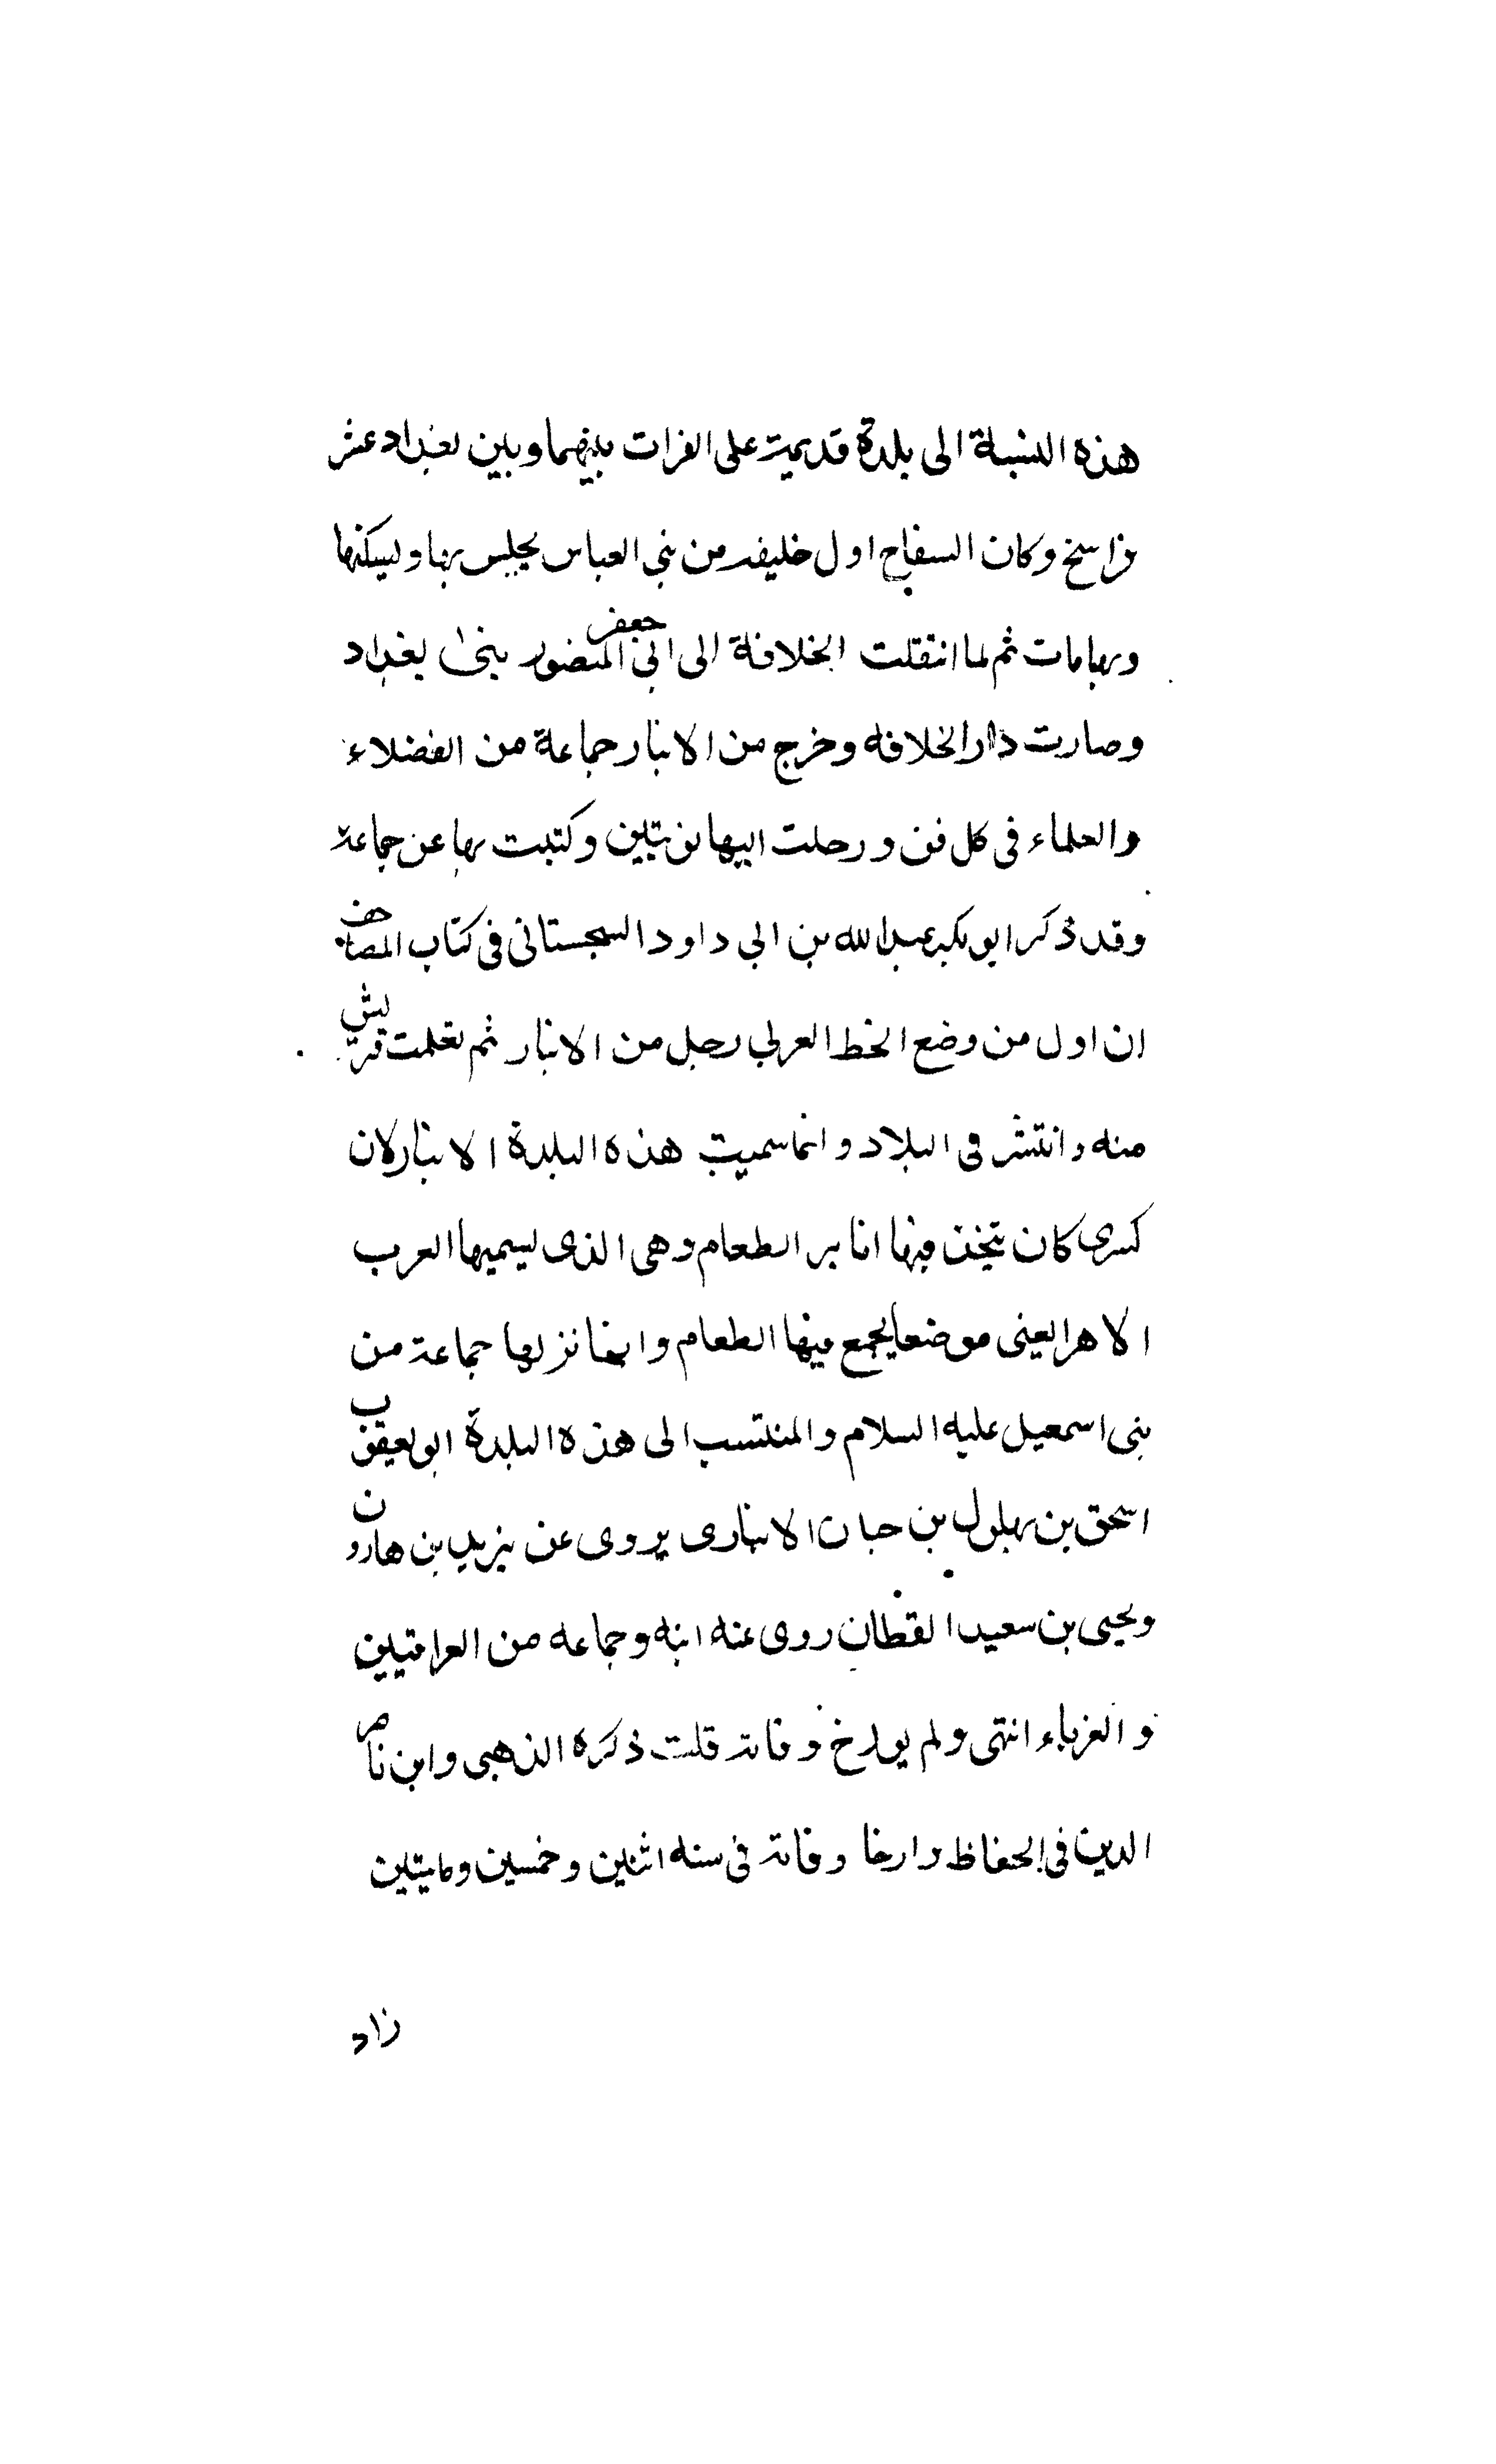 هذه النسبة الى بلدة قديمة على الفرات بينهما وبين بغداد عشر
فراسخ وكان السفاح اول خليفه من بني العباس يجلس بها ويسكنها
وبها مات ثم لما انتقلت الخلافة الى ابي جعفر المنصور بنى بغداد
وصارت دار الخلافه وخرج من الانبار جماعة من الفضلاء
والعلماء في كل فن ورحلت اليها نوبتين وكتبت بها عن جماعة
وقد ذكر ابو بكر عبد الله بن ابي داود السجستاني في كتاب المصاحف
ان اول من وضع الخط العربي رجل من الانبار ثم تعلمت قريش
منه وانتشر في البلاد وانما سميت هذه البلدة الانبار لان
كسرى كان يتخذ فيها انابير الطعام وهي الذى يسميها العرب
الاهرا يعنى موضعا يجمع فيها الطعام وايضا نزلها جماعة من
بنى اسمعيل عليه السلام والمنتسب الى هذه البلدة ابو يعقوب
اسحق بن بهلول بن حبان الانبارى يروى عن يزيد بن هارون
ويحيى بن سعيد القطان روى عنه ابنه وجماعه من العراقيين
والغرباء انتهى ولم يورخ وفاته قلت ذكره الذهبي وابن ناصر
الدين في الحفاظ وارخا وفاته في سنه اثنين وخمسين ومايتين
زاد